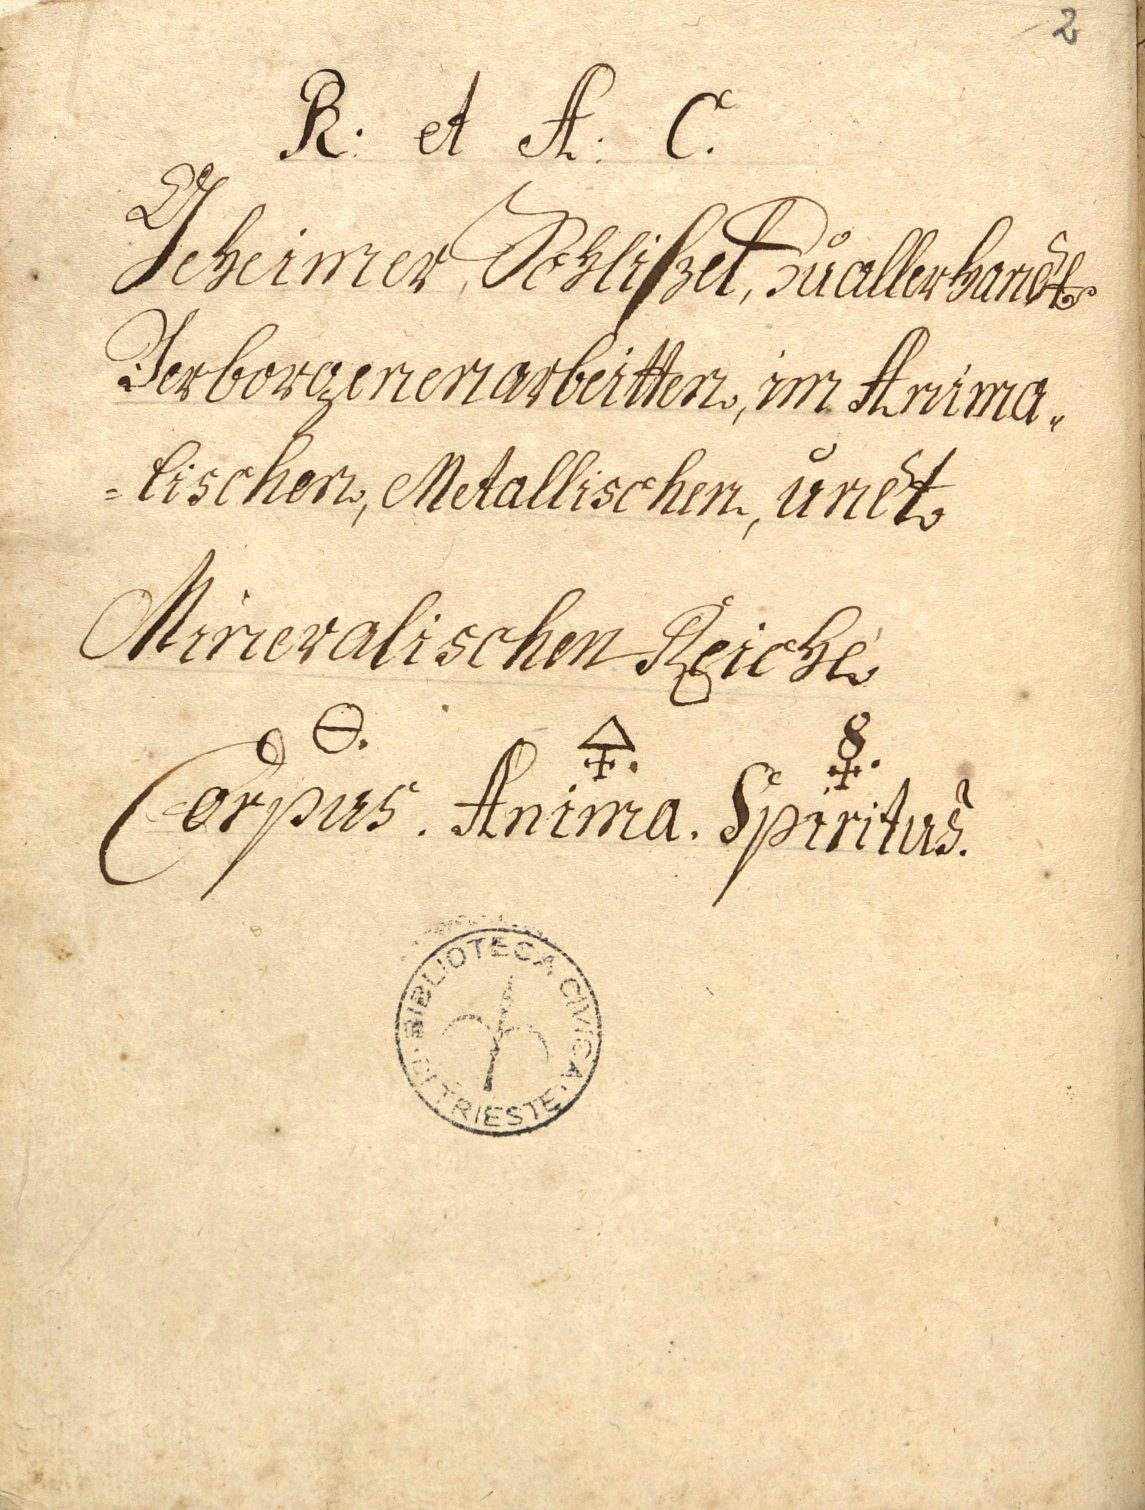 2
R: et A: C.
Geheimer, Schlißel, Zu allerhandt
Verborgenen arbeitten, im Anima„
=lischen, Metallischen, undt
Mineralischen Reiche
🜔. 🜍. 
Corpus. Anima. Spiritus.
BIBLIOTECA CIVICA
DI TRIESTE